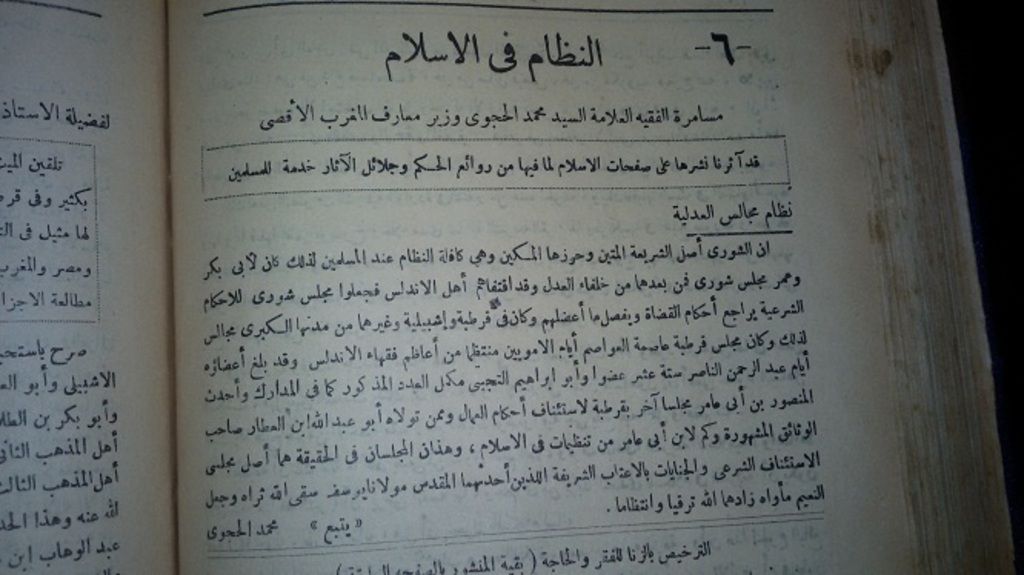 -٦- النظام فى الاسلام
مسامرة الفقيه العلامة السيد محمد الحجوى وزير معارف المغرب الأقصى
قد آثرنا نشرها على صفحات الاسلام لما فيها من روائع الحكم وجلائل الآثار خدمة للمسلمين
نظام مجالس العدلية
ان الشورى أصل الشريعة المتين وحرزها المكين وهى كافلة النظام عند المسلمين لذلك كان لأبى بكر
وعمر مجلس شورى فمن بعدهما من خلفاء العدل وقد اقتفاهم أهل الاندلس فجعلوا مجلس شورى للاحكام
الشرعية يراجع أحكام القضاة ويفصل ما أعضلهم وكان فى قرطبة وإشبيلية وغيرهما من مدنها الكبرى مجالس
لذلك وكان مجلس قرطبة عاصمة العواصم أيام الامويين منتظما من أعاظم فقهاء الاندلس وقد بلغ أعضاؤه
أيام عبد الرحمن الناصر ستة عشر عضوا وأبو ابراهيم التجيبى مكمل العدد المذكور كما فى المدارك وأحدث
المنصور بن أبى عامر مجلسا آخر بقرطبة لاستئناف أحكام العمال وممن تولاه أبو عبد الله ابن العطار صاحب
الوثائق المشهورة وكم لابن أبى عامر من تنظيمات فى الاسلام ، وهذان المجلسان فى الحقيقة هما أصل مجلسى
الاستئناف الشرعى والجنايات بالاعتاب الشريفة اللذين أحدثهما المقدس مولانا يوسف سقى الله ثراه وجعل
النعيم مأواه زادهما الله ترقيا وانتظاما .
« يتبع » محمد الحجوى
الترخيص بالزنا للفقر والحاجة ( بقية المنشور بالصفحه
لفضيلة الاستاذ
تلقين الميت
بكثير وفى
لها مثيل فى
ومصر والمغرب
مطالعة الاجزا
صرح باستحبا
الاشبيلى وأبو
وأبو بكر بن
أهل المذهب الثانى
أهل المذهب الثالث
الله عنه وهذا
عبد الوهاب ابن